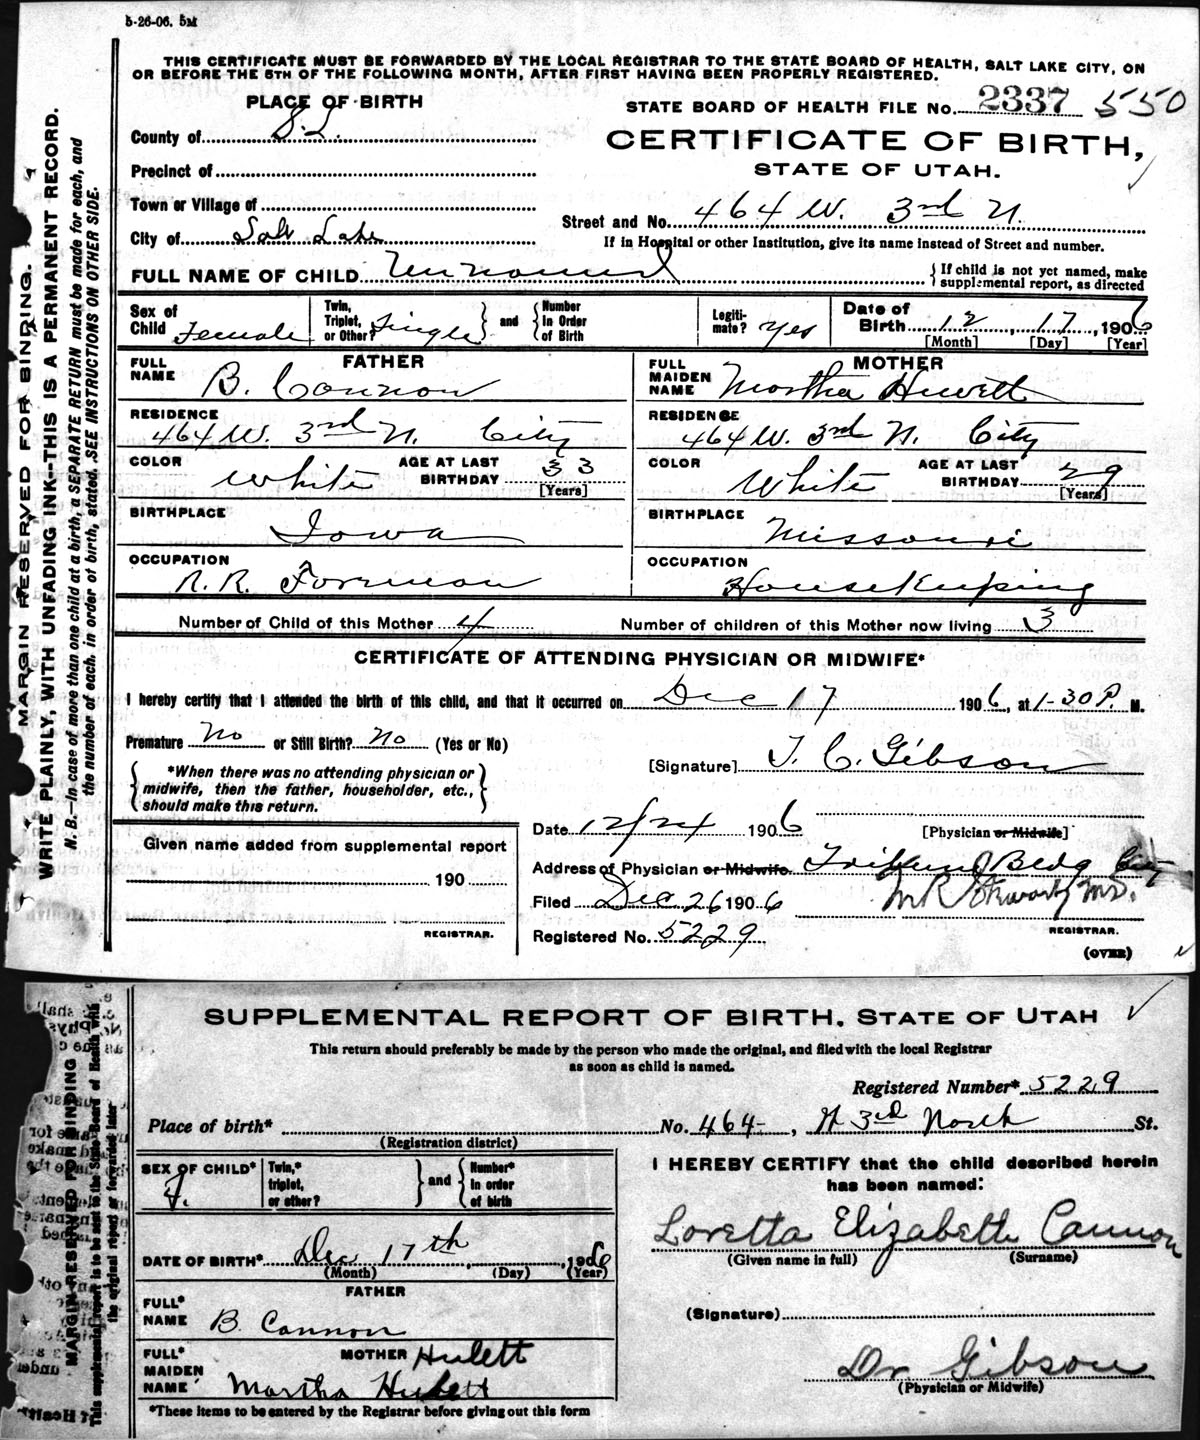 5-26-06. 5M
THIS CERTIFICATE MUST BE FORWARDED BY THE LOCAL REGISTRAR TO THE STATE BOARD OF HEALTH, SALT LAKE CITY, ON
OR BEFORE THE 5TH OF THE FOLLOWING MONTH, AFTER FIRST HAVING BEEN PROPERLY REGISTERED.
PLACE OF BIRTH
STATE BOARD OF HEALTH FILE No. 2337 550
County of S.L.
CERTIFICATE OF BIRTH,
STATE OF UTAH.
Precinct of
Town or Village of
Street and No. 464 W. 3rd N.
City of Salt Lake
If in Hospital or other Institution, give its name instead of Street and number.
FULL NAME OF CHILD Unnamed
If child is not yet named, make
supplemental report, as directed
Sex of
Child Female
Twin,
Triplet,
or Other? Single
and
Number
in Order
of Birth
Legiti-
mate? Yes
Date of
Birth 12, 17, 1906
[Month] [Day] [Year]
FATHER
FULL
NAME B. Cannon
MOTHER
FULL
MAIDEN
NAME Martha Hewett
RESIDENCE
464 W. 3rd N. City
RESIDENCE
464 W. 3rd N. City
COLOR White
AGE AT LAST
BIRTHDAY 33
[Years]
COLOR White
AGE AT LAST
BIRTHDAY 29
[Years]
BIRTHPLACE
Iowa
BIRTHPLACE
Missouri
OCCUPATION
R. R. Forman
OCCUPATION
Housekeeping
Number of Child of this Mother 4
Number of children of this Mother now living 3
CERTIFICATE OF ATTENDING PHYSICIAN OR MIDWIFE*
I hereby certify that I attended the birth of this child, and that it occurred on Dec 17 1906, at 1-30 P. M.
Premature No or Still Birth? No (Yes or No)
*When there was no attending physician or
midwife, then the father, householder, etc.,
should make this return.
[Signature] T. C. Gibson
Date 12/24 1906
[Physician or Midwife]
Given name added from supplemental report
190
REGISTRAR.
Address of Physician or Midwife Tribune Bldg City
Filed Dec 26 1906
M R Stewart MD.
Registered No. 5229
REGISTRAR.
(OVER)
MARGIN RESERVED FOR BINDING.
WRITE PLAINLY, WITH UNFADING INK--THIS IS A PERMANENT RECORD.
N. B.—In case of more than one child at a birth, a SEPARATE RETURN must be made for each, and
the number of each, in order of birth, stated. SEE INSTRUCTIONS ON OTHER SIDE.
SUPPLEMENTAL REPORT OF BIRTH, STATE OF UTAH
This return should preferably be made by the person who made the original, and filed with the local Registrar
as soon as child is named.
Registered Number* 5229
Place of birth*
No. 464-, W 3rd North St.
(Registration district)
SEX OF CHILD*
f.
Twin,*
triplet,
or other?
and
Number*
in order
of birth
I HEREBY CERTIFY that the child described herein
has been named:
Loretta Elizabeth Cannon
(Given name in full) (Surname)
DATE OF BIRTH* Dec 17th, 1906
(Month) (Day) (Year)
FATHER
FULL*
NAME B. Cannon
(Signature)
MOTHER Hulett
FULL*
MAIDEN
NAME* Martha Hulett
Dr Gibson
(Physician or Midwife)
*These items to be entered by the Registrar before giving out this form
MARGIN RESERVED FOR BINDING
This supplemental report is to be sent to the State Board of Health with
the original report or forwarded later